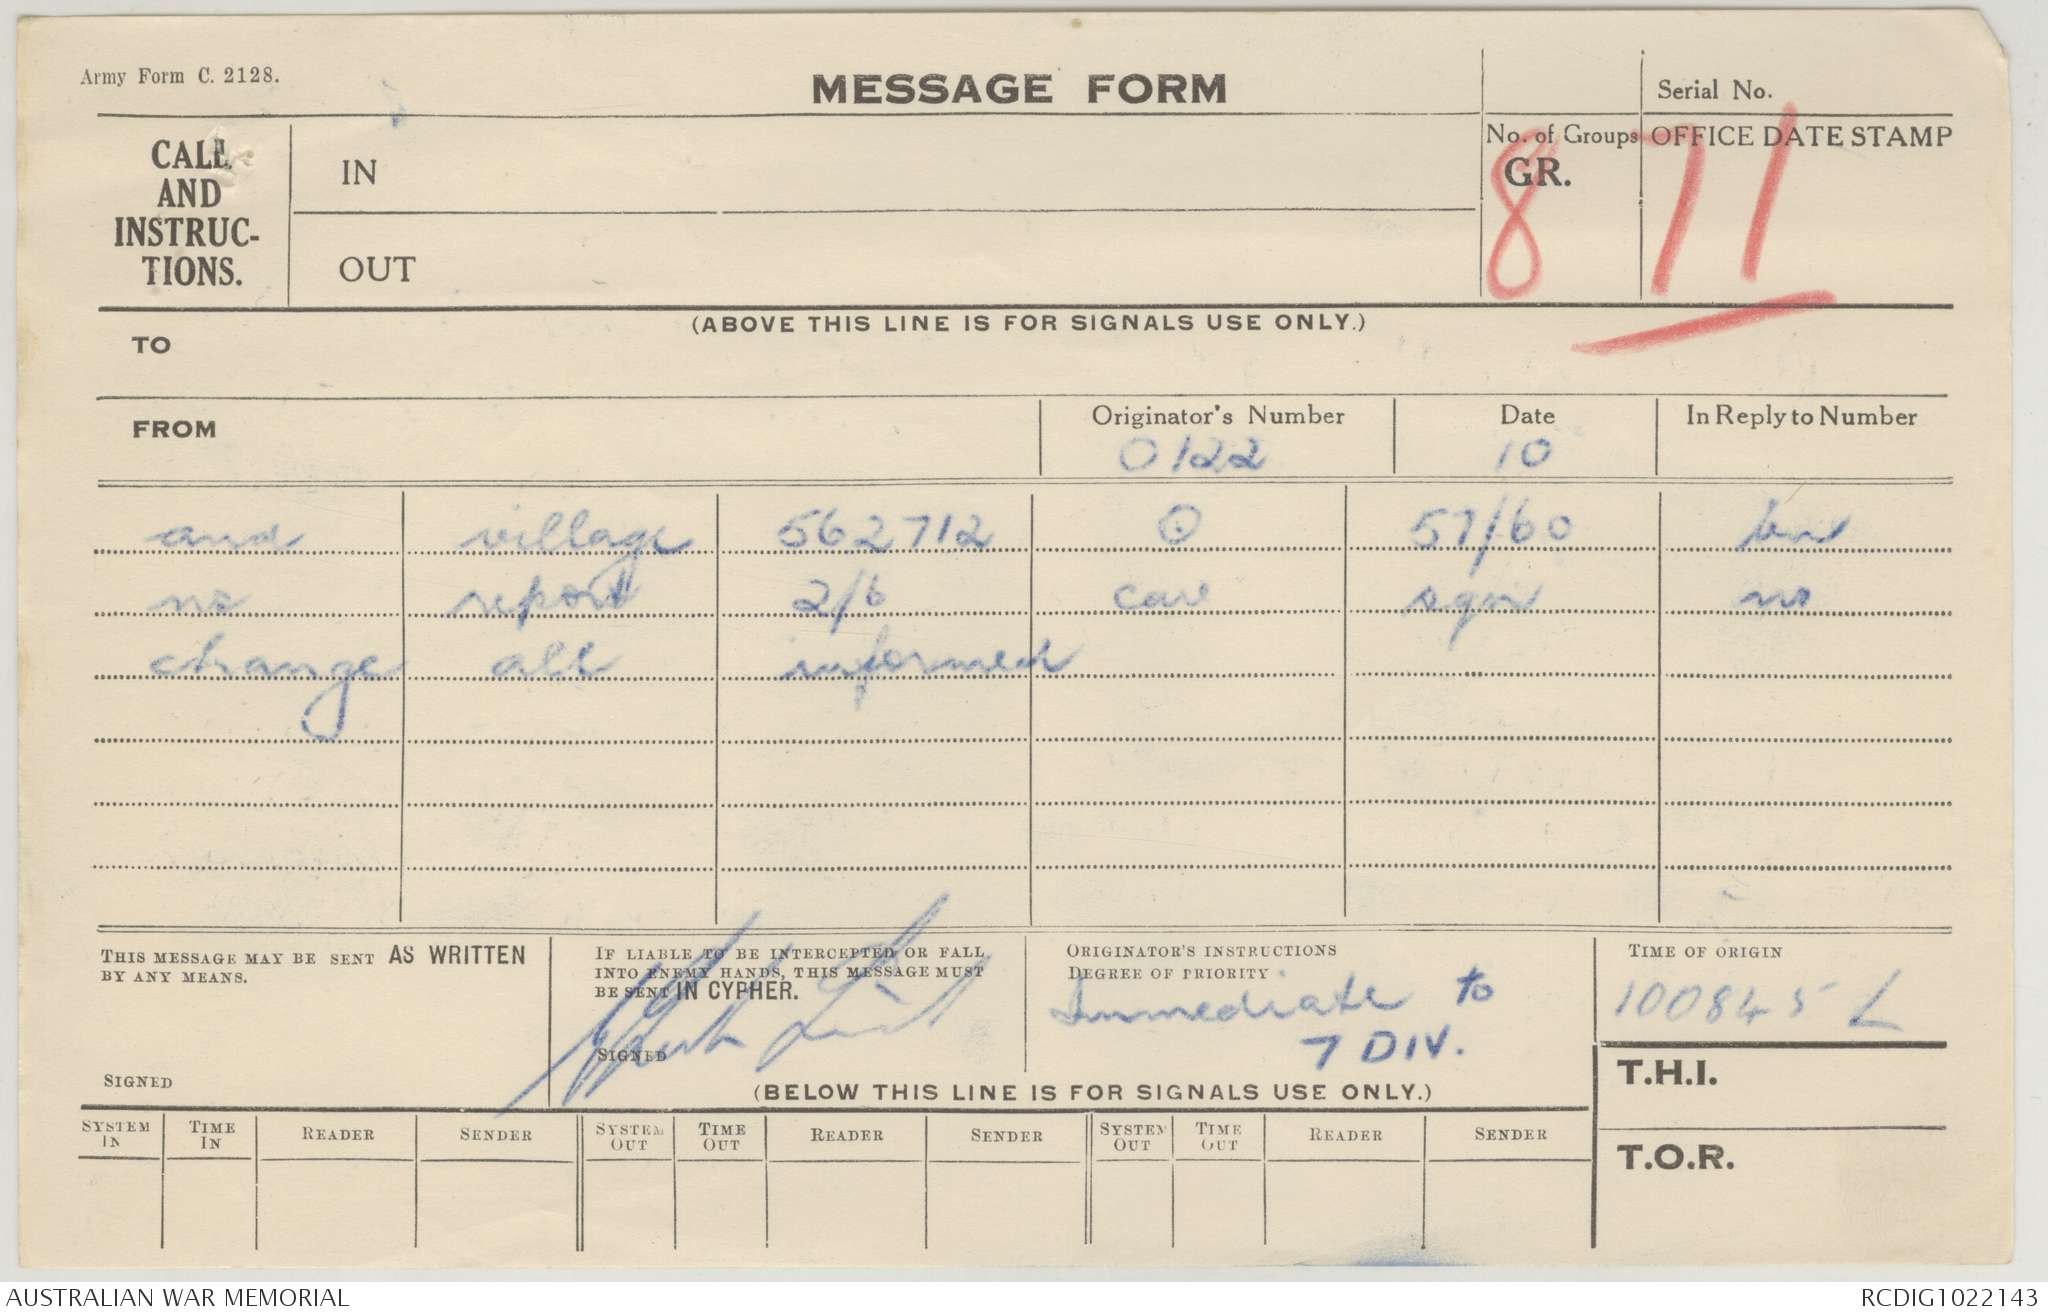 Army Form C. 2128.
MESSAGE FORM
Serial No.
CALL
AND
INSTRUC-
TIONS.
IN
OUT
No. of Groups
GR.
OFFICE DATE STAMP
871
(ABOVE THIS LINE IS FOR SIGNALS USE ONLY.)
TO
FROM
Originator's Number
0122
Date
10
In Reply to Number
and village 562712 O 57/60 bn
no report 2/6 cav sqn no
change all informed
THIS MESSAGE MAY BE SENT AS WRITTEN
BY ANY MEANS.
SIGNED
IF LIABLE TO BE INTERCEPTED OR FALL
INTO ENEMY HANDS, THIS MESSAGE MUST
BE SENT IN CYPHER.
SIGNED
ORIGINATOR'S INSTRUCTIONS
DEGREE OF PRIORITY
Immediate to
7 DIV.
TIME OF ORIGIN
100845 L
T.H.I.
T.O.R.
(BELOW THIS LINE IS FOR SIGNALS USE ONLY.)
SYSTEM IN TIME IN READER SENDER SYSTEM OUT TIME OUT READER SENDER SYSTEM OUT TIME OUT READER SENDER
AUSTRALIAN WAR MEMORIAL
RCDIG1022143